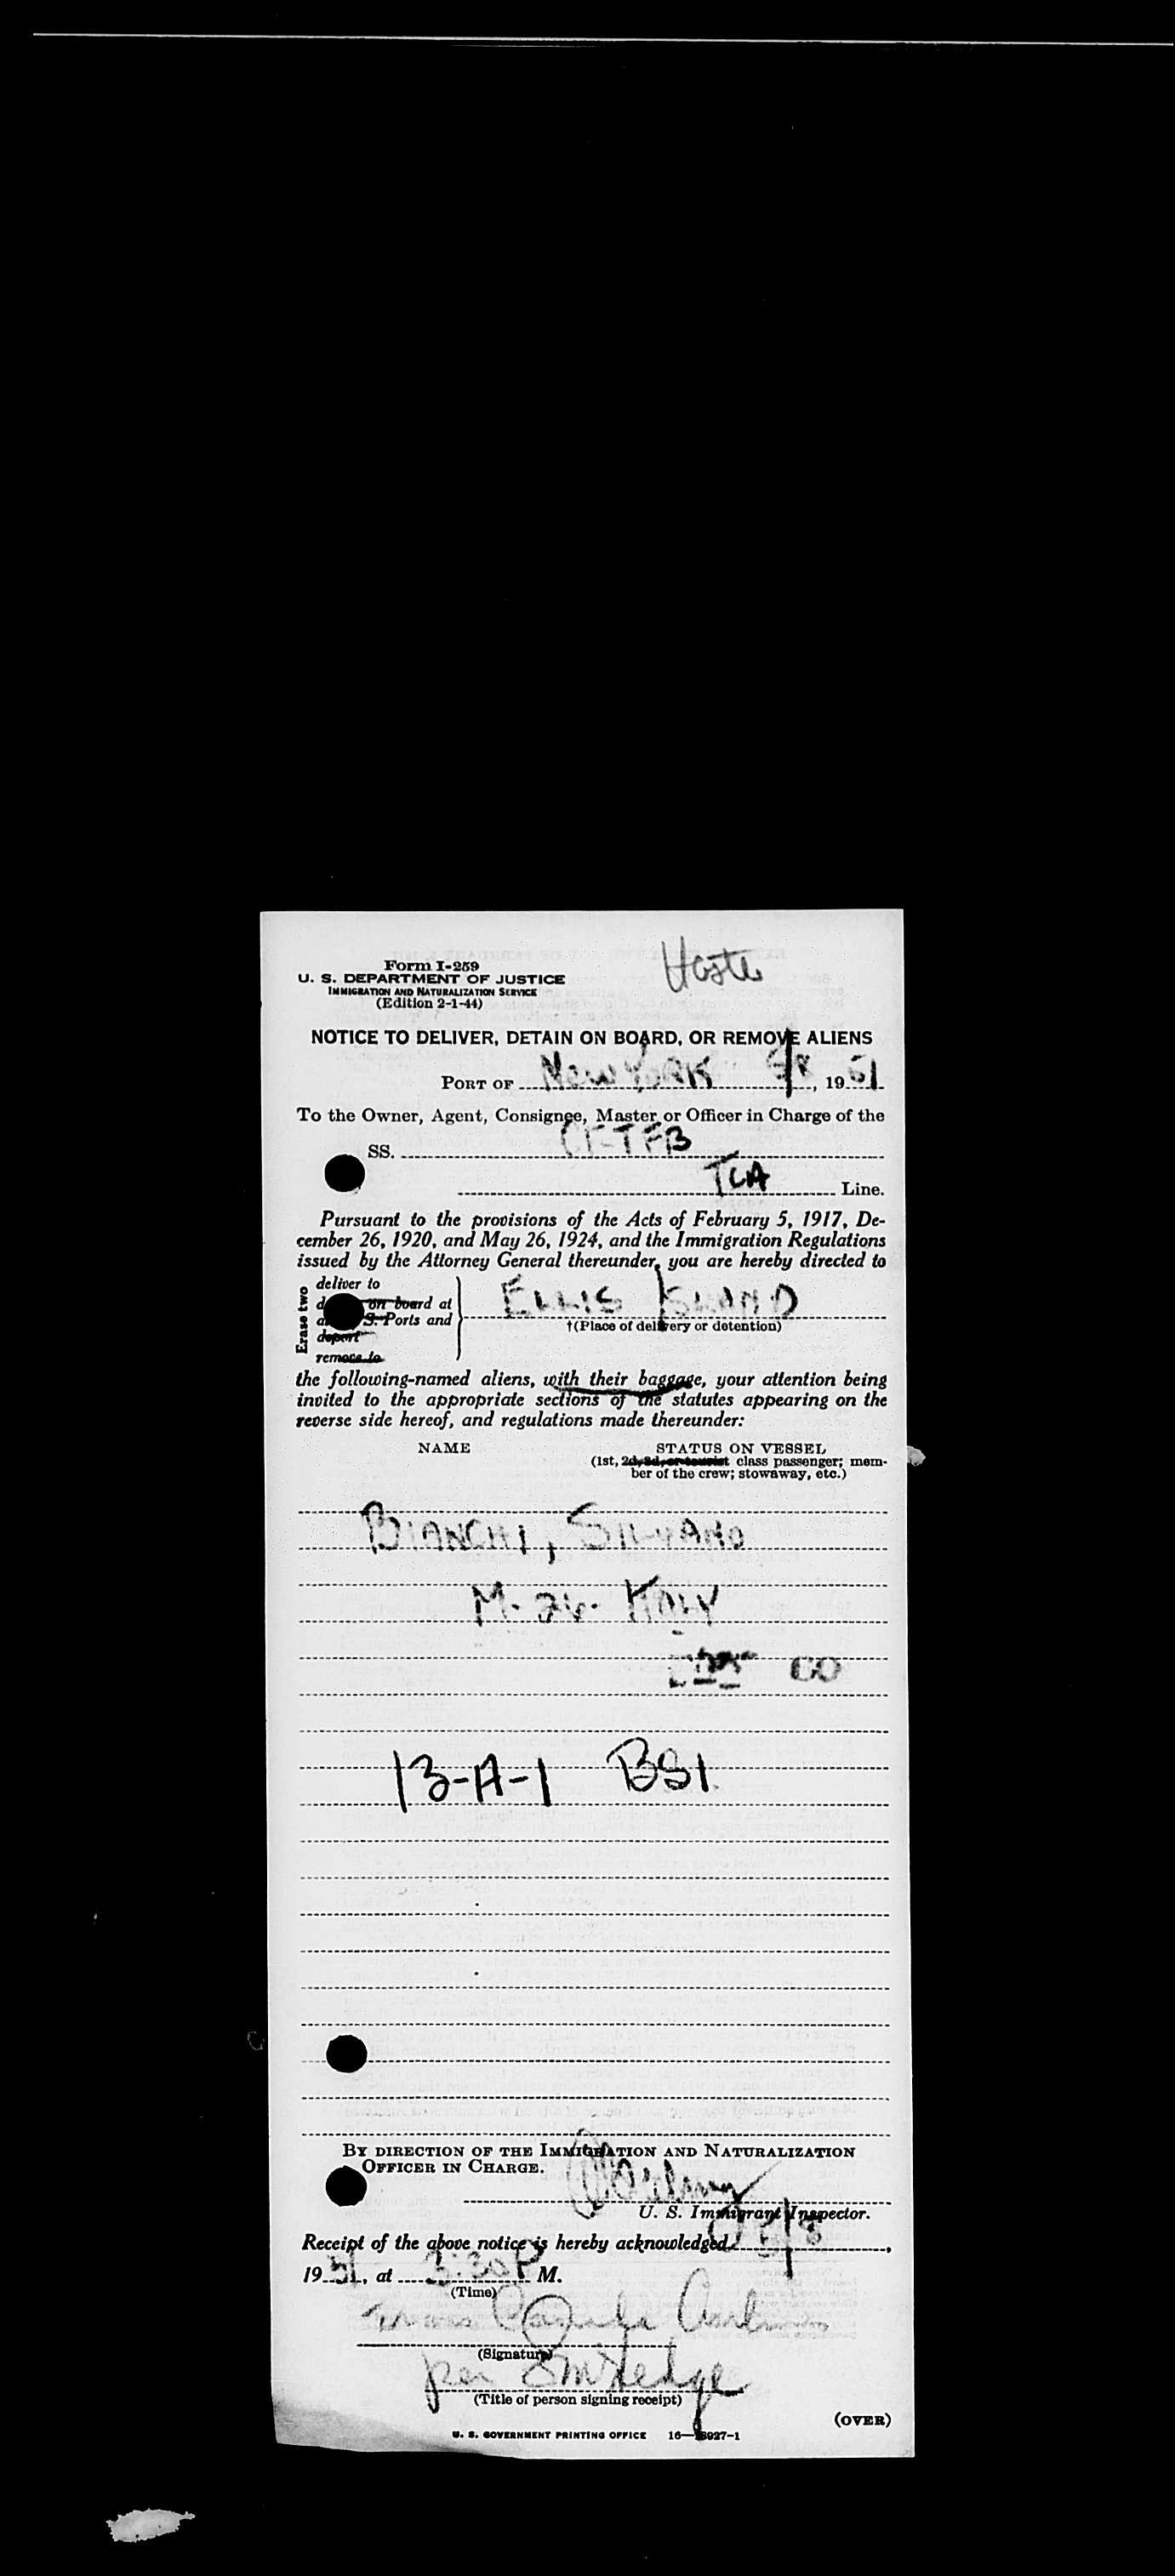 Form I-259
U. S. DEPARTMENT OF JUSTICE
IMMIGRATION AND NATURALIZATION SERVICE
(Edition 2-1-44)
NOTICE TO DELIVER, DETAIN ON BOARD, OR REMOVE ALIENS
PORT OF New York, 1951
To the Owner, Agent, Consignee, Master or Officer in Charge of the
SS. CF-TFB
TCA Line.
Pursuant to the provisions of the Acts of February 5, 1917, De-
cember 26, 1920, and May 26, 1924, and the Immigration Regulations
issued by the Attorney General thereunder, you are hereby directed to
Erase two
deliver to
on board at
S. Ports and
deport
remove to
ELLIS ISLAND
†(Place of delivery or detention)
the following-named aliens, with their baggage, your attention being
invited to the appropriate sections of the statutes appearing on the
reverse side hereof, and regulations made thereunder:
NAME STATUS ON VESSEL
(1st, 2d, 3d, or tourist class passenger; mem-
ber of the crew; stowaway, etc.)
BIANCHI, SILVANO
M. ITALY
13-A-1 BSI
BY DIRECTION OF THE IMMIGRATION AND NATURALIZATION
OFFICER IN CHARGE.
U. S. Immigrant Inspector.
Receipt of the above notice is hereby acknowledged
1951, at 3:30 P M.
(Time)
Trans Canada Airlines
(Signature)
per
(Title of person signing receipt)
(OVER)
U. S. GOVERNMENT PRINTING OFFICE